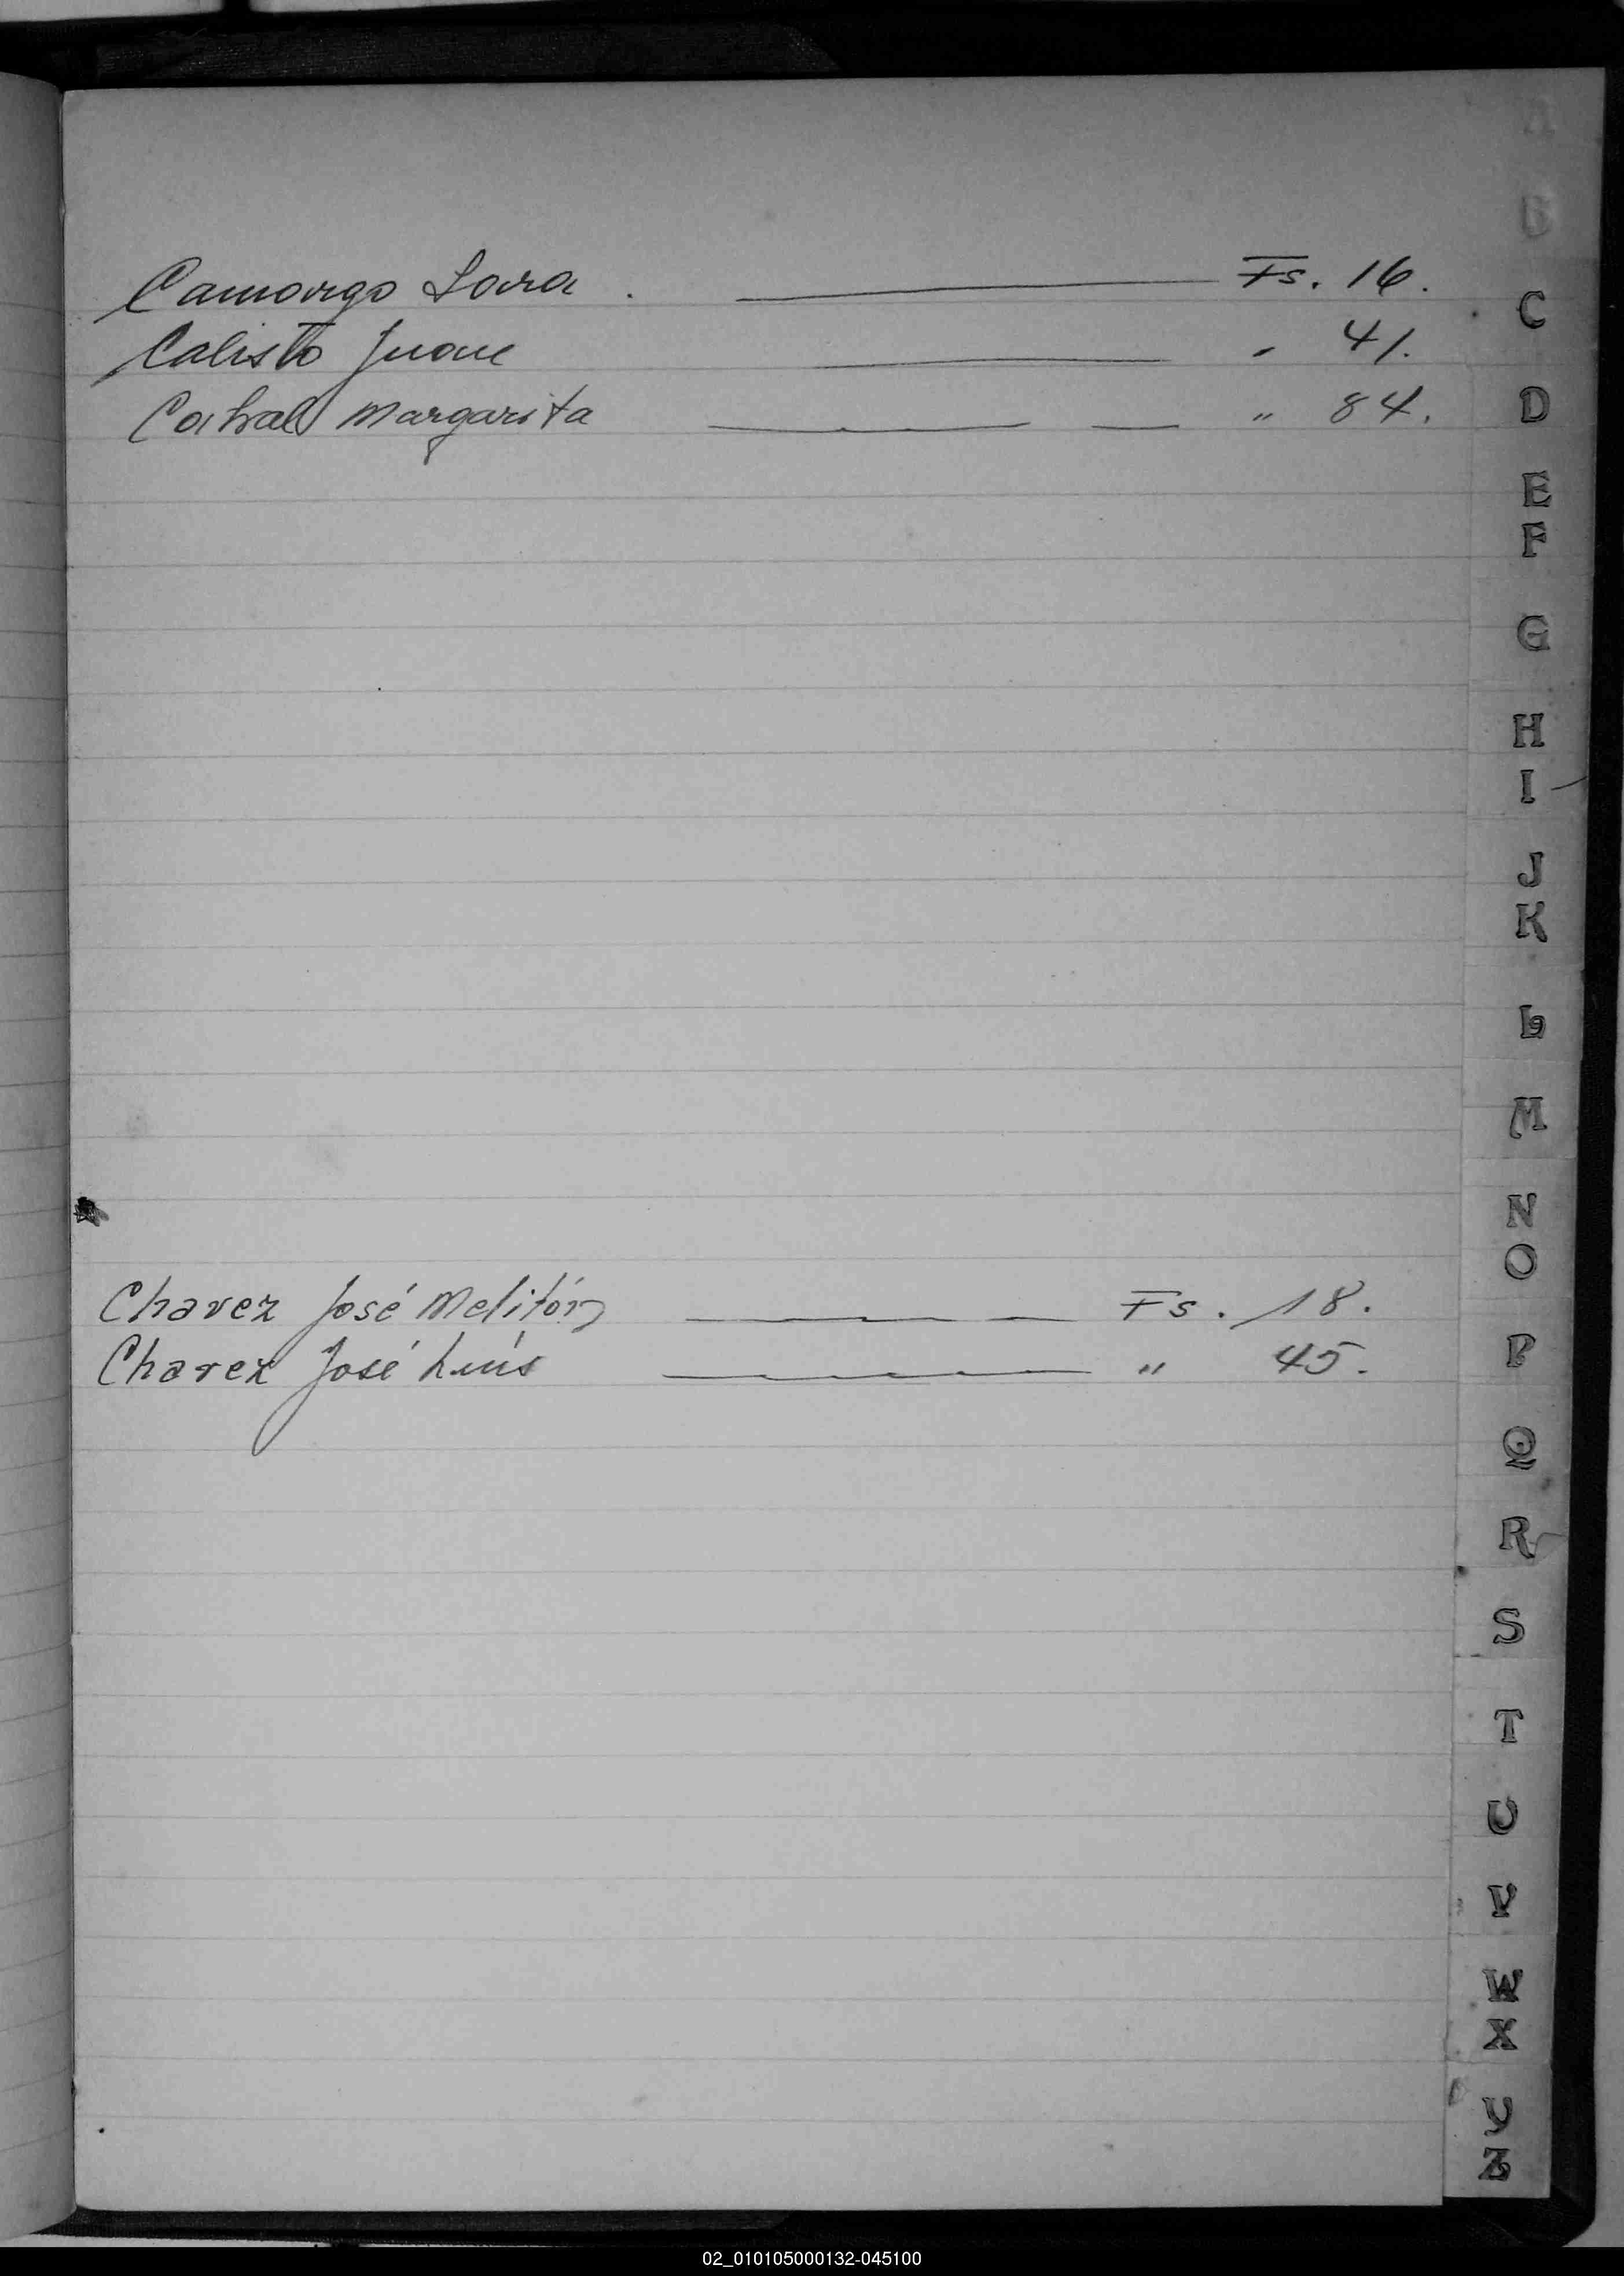 Camargo Sara . Fs. 16.
Calisto Juan " 41.
Cabral Margarita " 84.
Chavez José Melitón Fs. 18.
Chavez José Luís " 45.
A
B
C
D
E
F
G
H
I
J
K
L
M
N
O
P
Q
R
S
T
U
V
W
X
Y
Z
02_010105000132-045100